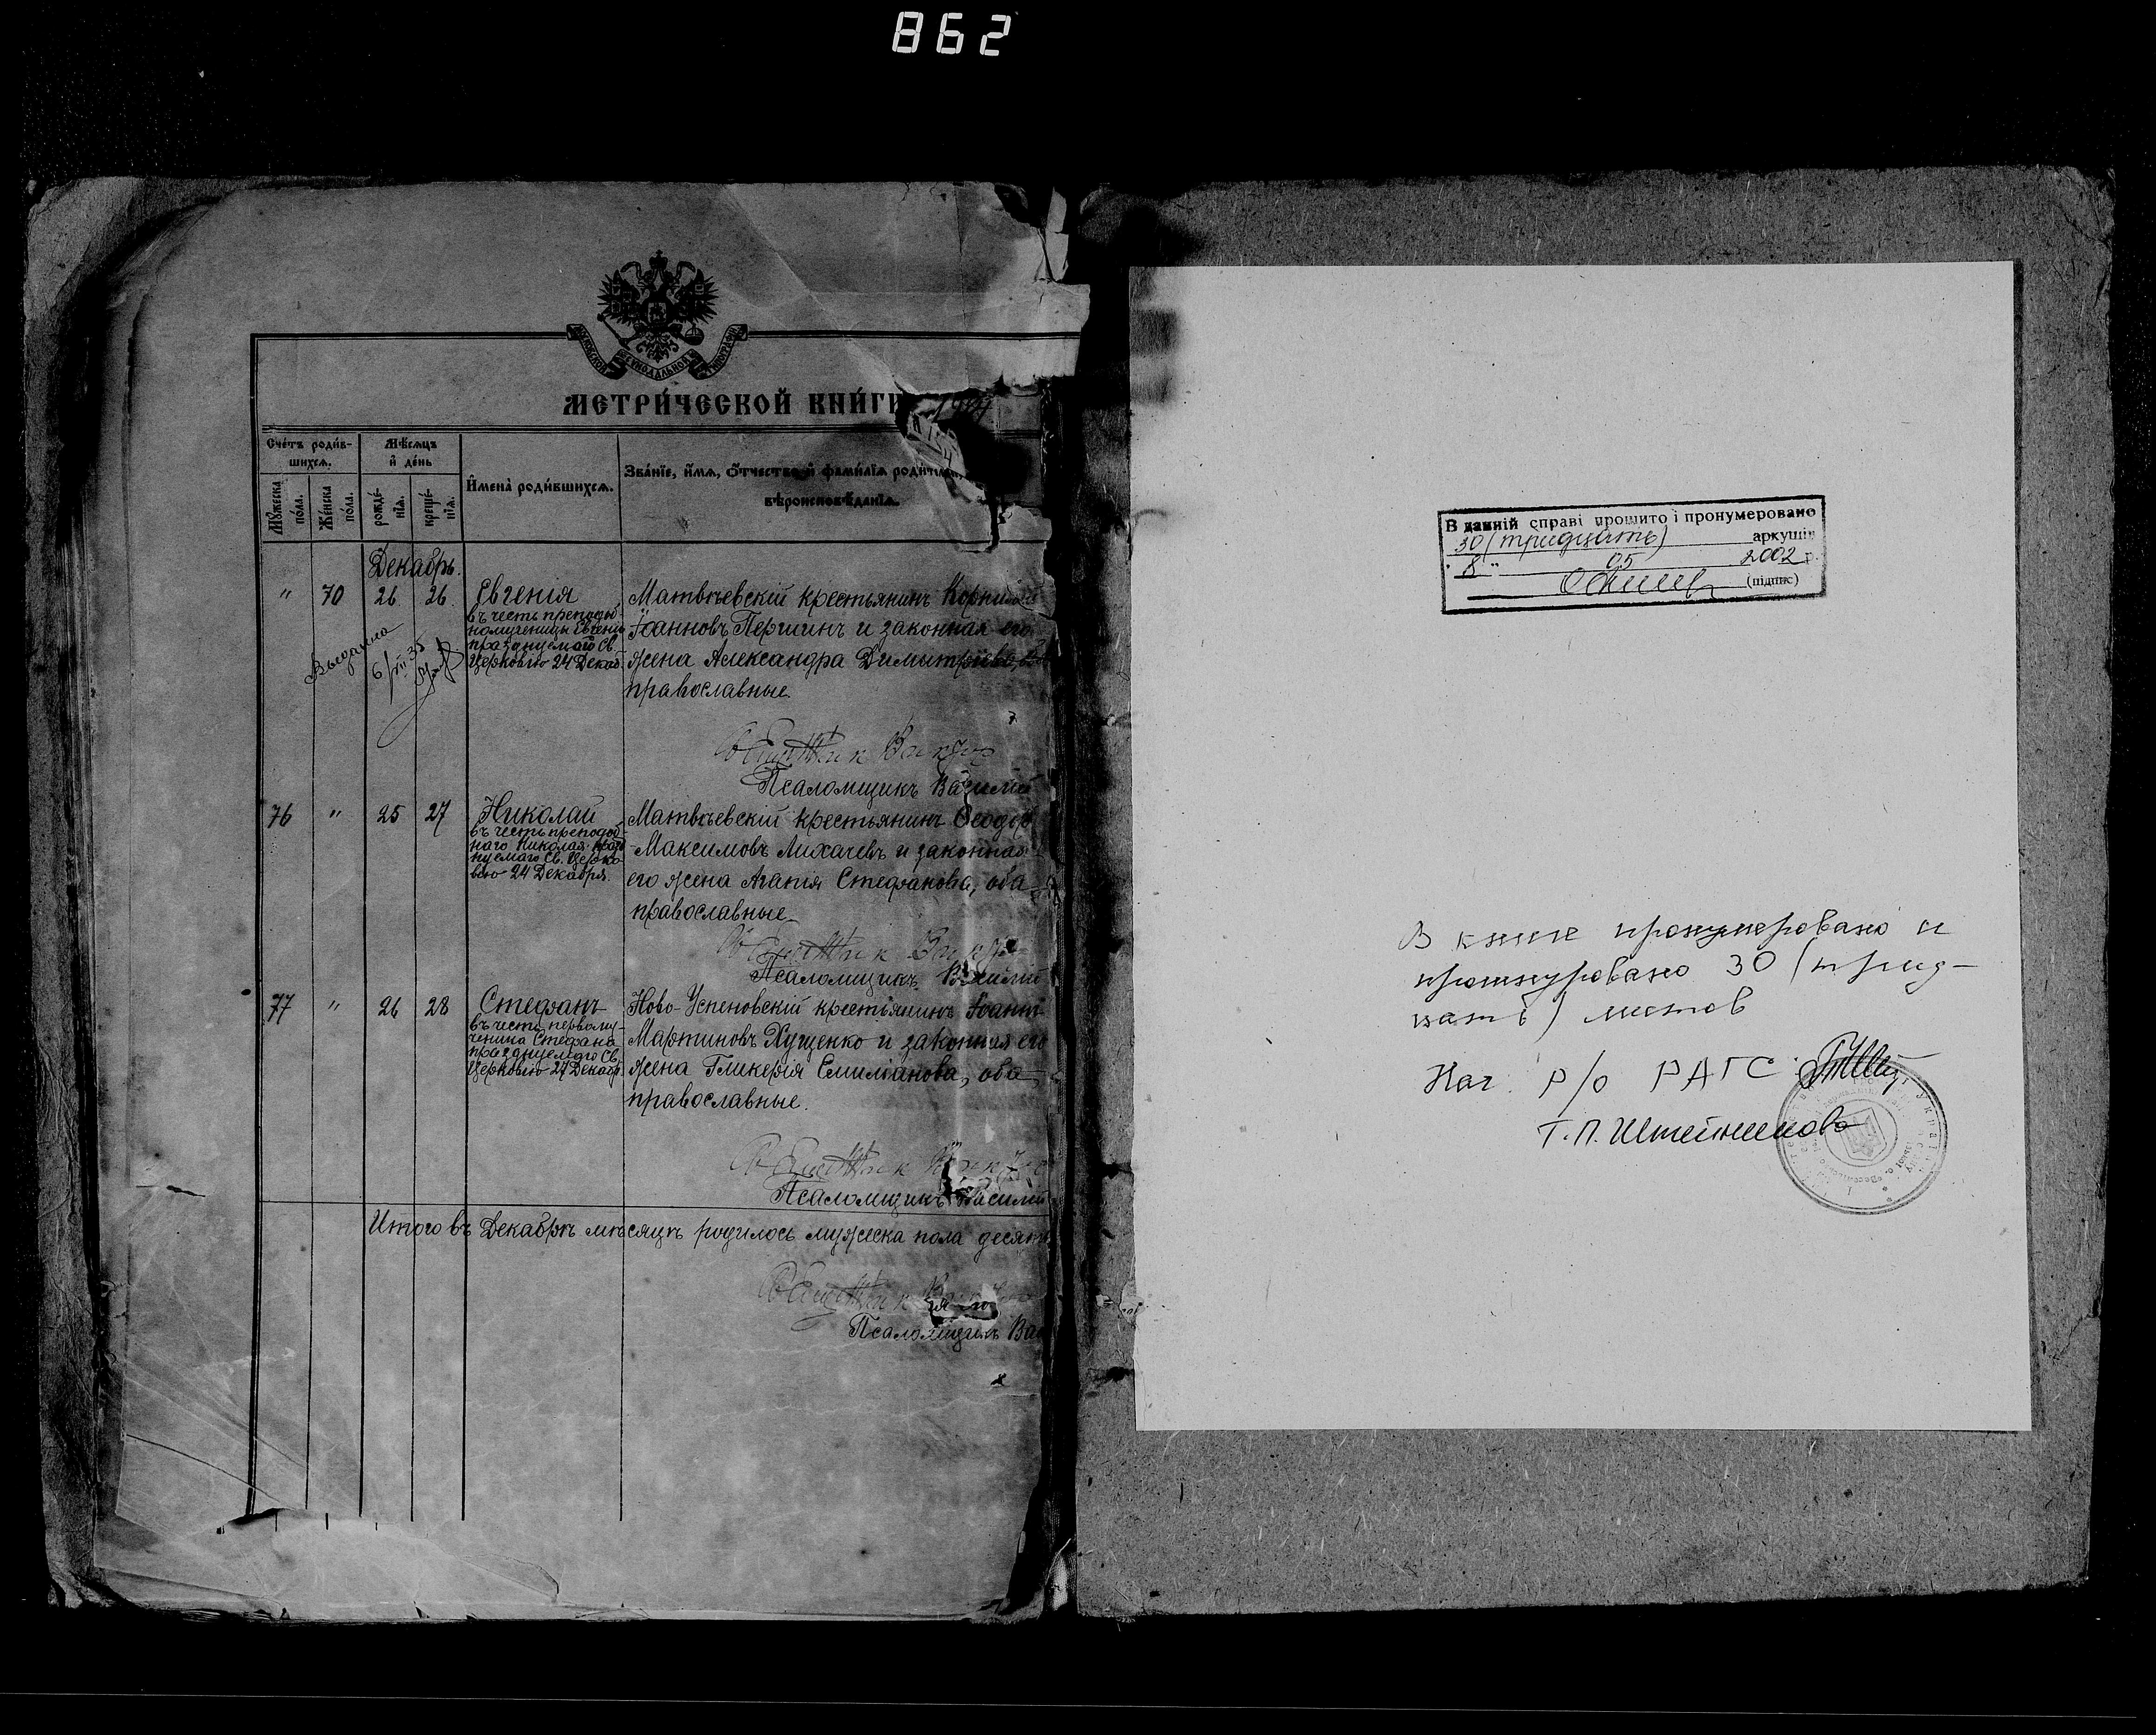 862
СѴНОДАЛЬНОЙ
МЕТРИ́ЧЕСКОЙ КНИ́ГИ
Сче́тъ роди́в-
шихсѧ.
Мѣ́сѧцъ
и҆ де́нь
И҆мена̀ роди́вшихсѧ.
Зва́нїе, и҆́мѧ, ѻ҆́тчество и҆ фами́лїѧ
вѣроисповѣ́данїѧ.
Мꙋ́жеска
по́ла.
Же́нска
по́ла.
рожде́-
нїѧ.
креще́-
нїѧ.
Декабрь.
" 70 26 26 Евгенія
въ честь преподоб-
номученицы Евгеніи
празднуемаго Св.
Церковью 24 Декаб.
Матвѣевскій крестьянинъ
Іоанновъ Першинъ и законная его
жена Александра
православные.
Выдана
Псаломщикъ Василій
76 " 25 27 Николай
въ честь преподоб-
наго Николая
нуемаго Св. Церко-
вью 24 Декабря.
Матвѣевскій крестьянинъ Ѳеодоръ
Максимовъ Лихачевъ и законная
его жена Агапія Стефанова, оба
православные.
Псаломщикъ Василій
77 " 26 28 Стефанъ
въ честь первому-
ченика Стефана
празднуемаго Св.
Церковью 27 Декабр.
Ново-Успеновскій крестьянинъ Іоаннъ
Мартиновъ Хущенко и законная его
жена Гликерія Емиліанова, оба
православные.
Псаломщикъ Василій
Итого въ Декабрѣ мѣсяцѣ родилось мужеска пола десять
Псаломщикъ
В данній справі прошито і пронумеровано
30 (тридцать) аркушів
"8" 05 2002 р.
(підпис)
В книге пронумеровано и
прошнуровано 30 (трид-
цать) листов
Нач. р/о РАГС
Т.П. Штейникова